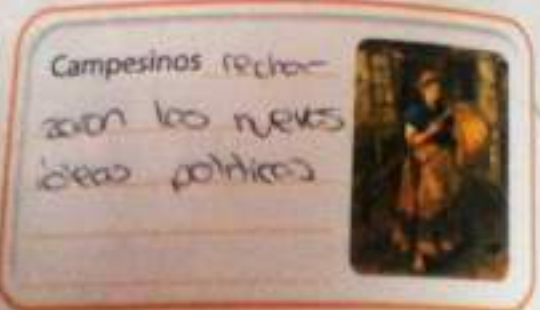 Campesinos rechar-
zaron las nuevas
ideas politicas